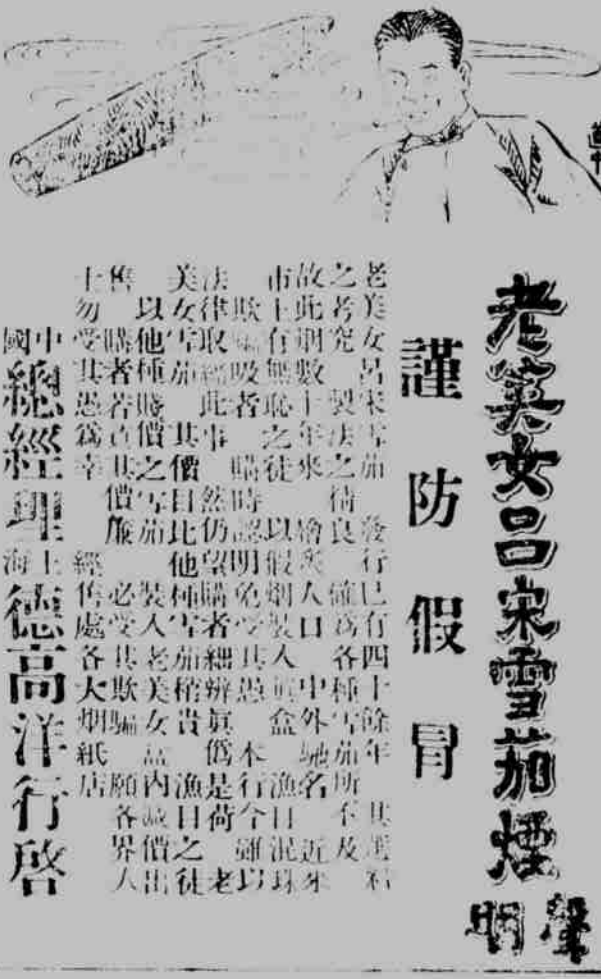 老美女呂宋雪茄煙
聲明
謹防假冒
老美女呂宋雪茄 發行已有四十餘年 其選料
之考究 製法之精良 確爲各種雪茄所不及
故此烟數十年來 膾炙人口 中外馳名 近來
市上有無恥之徒 以假烟裝入眞盒 漁目混珠
欺騙吸者 購時認明免受其愚 本行今雖以
法律取締此事 然仍望購者細辨眞僞是荷 老
美女雪茄 其價目比他種雪茄稍貴 漁目之徒
以他種賤價之雪茄 裝入老美女盒內減價出
售 購者若貪其價廉 必受其欺騙 願各界人
士勿受其愚爲幸 經售處各大烟紙店
中國總經理上海德高洋行啓